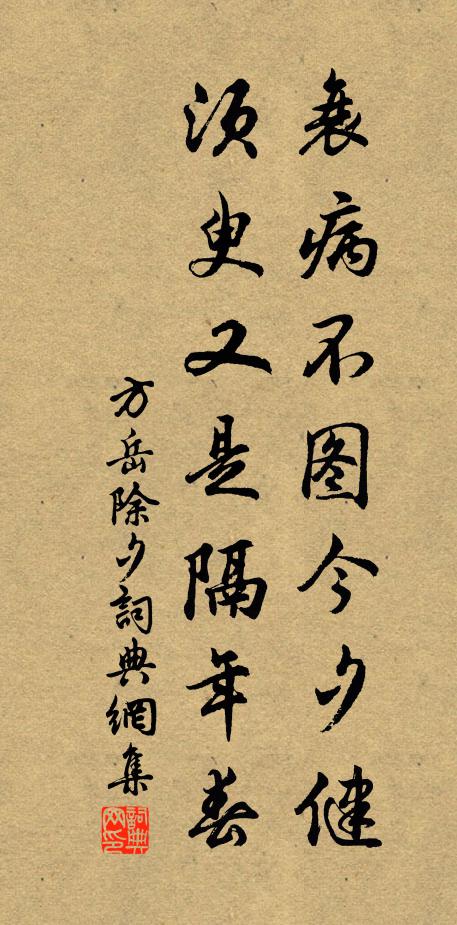 衰病不图今夕健
须叟又是隔年春
方岳除夕詞典網集
詞典网印